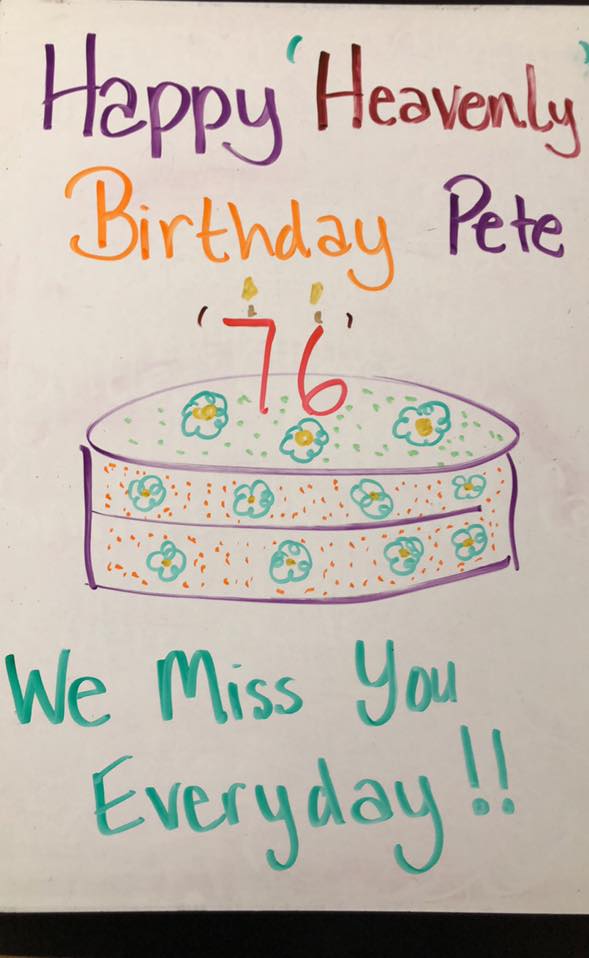 Happy 'Heavenly'
Birthday Pete
'76'
We Miss You
Everyday!!